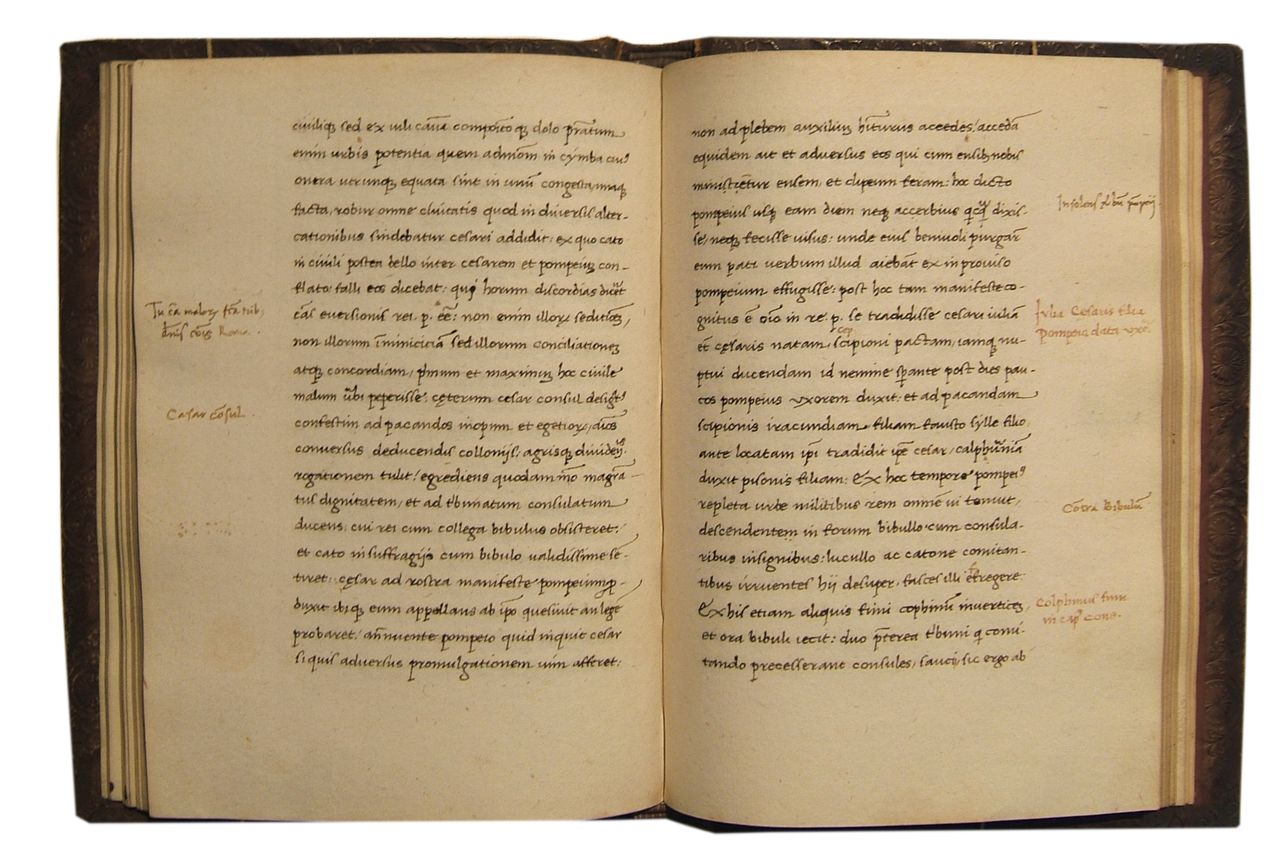 civiliq; sed ex vili causa compoſito q; dolo p̄ratum
enim urbis potentia quem admom in cymba
onera utrunq; equata sint in unū congesta,
facta, robur omne ciuitatis quod in diuersis alter-
cationibus findebatur cesari addidit: ex quo cato
in ciuili postea bello inter cesarem et pompeiū con-
flato: falli eos dicebat: qui horum discordias
cās euersionis rei. p. eē: non enim illoꝝ seditiones,
non illorum inimicicia sed illorum conciliationeꝫ
atq; concordiam, p̄mum et maximum hoc ciuile
malum urbi peperisse. cęterum cesar consul
confestim ad pacandos inopum et egetioꝝ
conuersus deducendis collonijs: agrisq;
rogationem tulit: egrediens quodam mō magrā-
tus dignitatem, et ad tribunatum consulatum
ducens, cui rei cum collega bibulus obsisteret,
et cato in suffragijs cum bibulo ualidissime sē-
tiret: cęsar ad rostra manifeste pompeium p-
duxit ibiq; eum appellans ab ip̄o quesiuit an legē
probaret, añuente pompeio quid inquit cesar
si quis aduersus promulgationem uim afferet:
Casar cōsul.
non ad plebem auxiliū accedes: accedā
equidem ait et aduersus eos qui cum ensib; nobis
ensem, et clipeum feram: hoc dicto
pompeius usq; eam diem neq; accerbius dixis-
se, neq; fecisse uisus: unde eius beniuoli purgar̄
eum pati uerbum illud aiebāt ex inprouiso
pompeium effugisse: post hoc tam manifeste co-
gnitus ē oīo in re. p. se tradidisse cesari iuliā
et cęsaris natam, scipioni pactam, iamq; nu-
cep
ptui ducendam id nemine sperante post dies pau-
cos pompeius uxorem duxit: et ad pacandam
scipionis iracundiam filiam fausto sylle filio
ante locatam ip̄i tradidit ip̄e cesar, calphurniā
duxit pisonis filiam: Ex hoc tempore pompeiꝰ
repleta urbe militibus rem omnē ui tenuit,
descendentem in forum bibullo cum consula-
ribus insignibus: lucullo ac catone comitan-
tibus irruentes hij desuper, fasces illi
Ex his etiam aliquis fimi cophinū in uertices
et ora bibuli iecit: duo p̄terea tribuni q comi-
tando precesserant consules, saucij, sic ergo ab
Iulia Cesaris filia
Pompeio data uxor
Cōtra Bibulū
Cophinus fimi
in cap̄ cons.